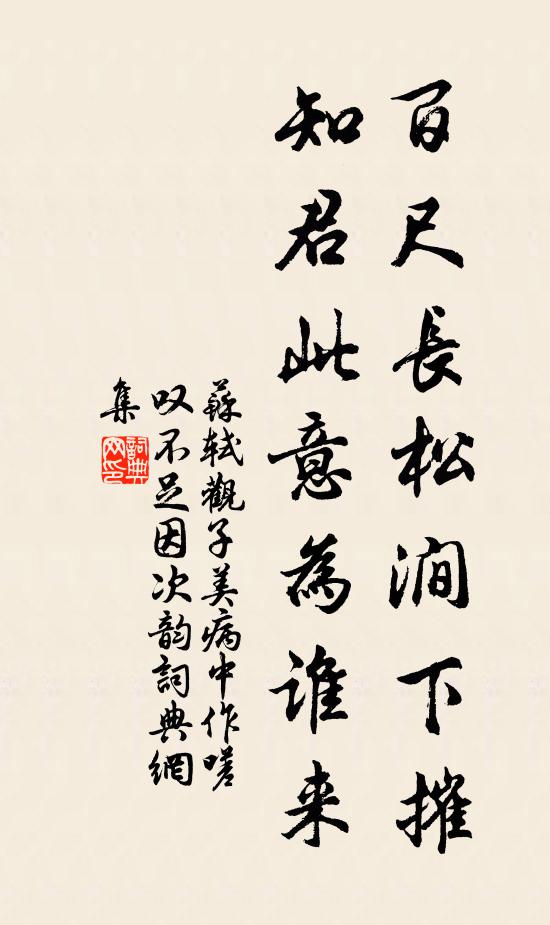 百尺長松澗下摧
知君此意為誰来
蘇軾觀子美病中作嗟
叹不足因次韵詞典網
集
詞典網印